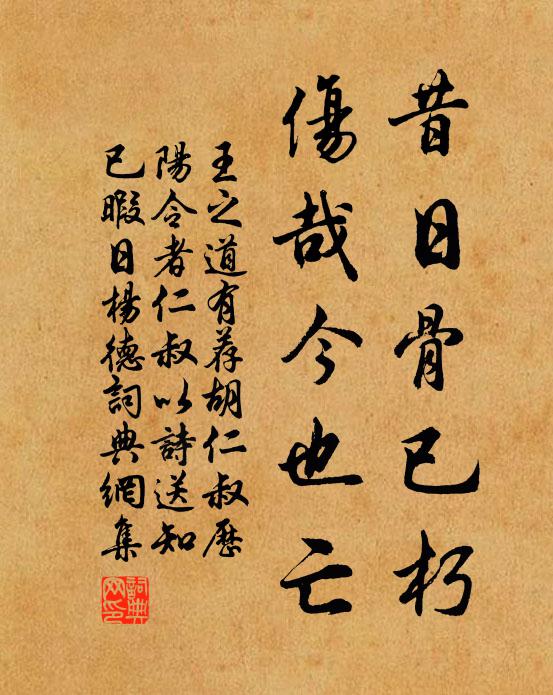 昔日骨已朽
傷哉今也亡
王之道有荐胡仁叔歷
陽令者仁叔以詩送知
已暇日楊德詞典網集
詞典网印